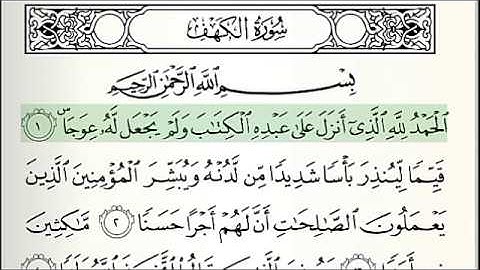 سُورَةُ الكَهْفِ
بِسْمِ اللَّهِ الرَّحْمَٰنِ الرَّحِيمِ
الْحَمْدُ لِلَّهِ الَّذِي أَنزَلَ عَلَىٰ عَبْدِهِ الْكِتَابَ وَلَمْ يَجْعَل لَّهُ عِوَجَاۜ ١
قَيِّمًا لِّيُنذِرَ بَأْسًا شَدِيدًا مِّن لَّدُنْهُ وَيُبَشِّرَ الْمُؤْمِنِينَ الَّذِينَ
يَعْمَلُونَ الصَّالِحَاتِ أَنَّ لَهُمْ أَجْرًا حَسَنًا ٢ مَّاكِثِينَ